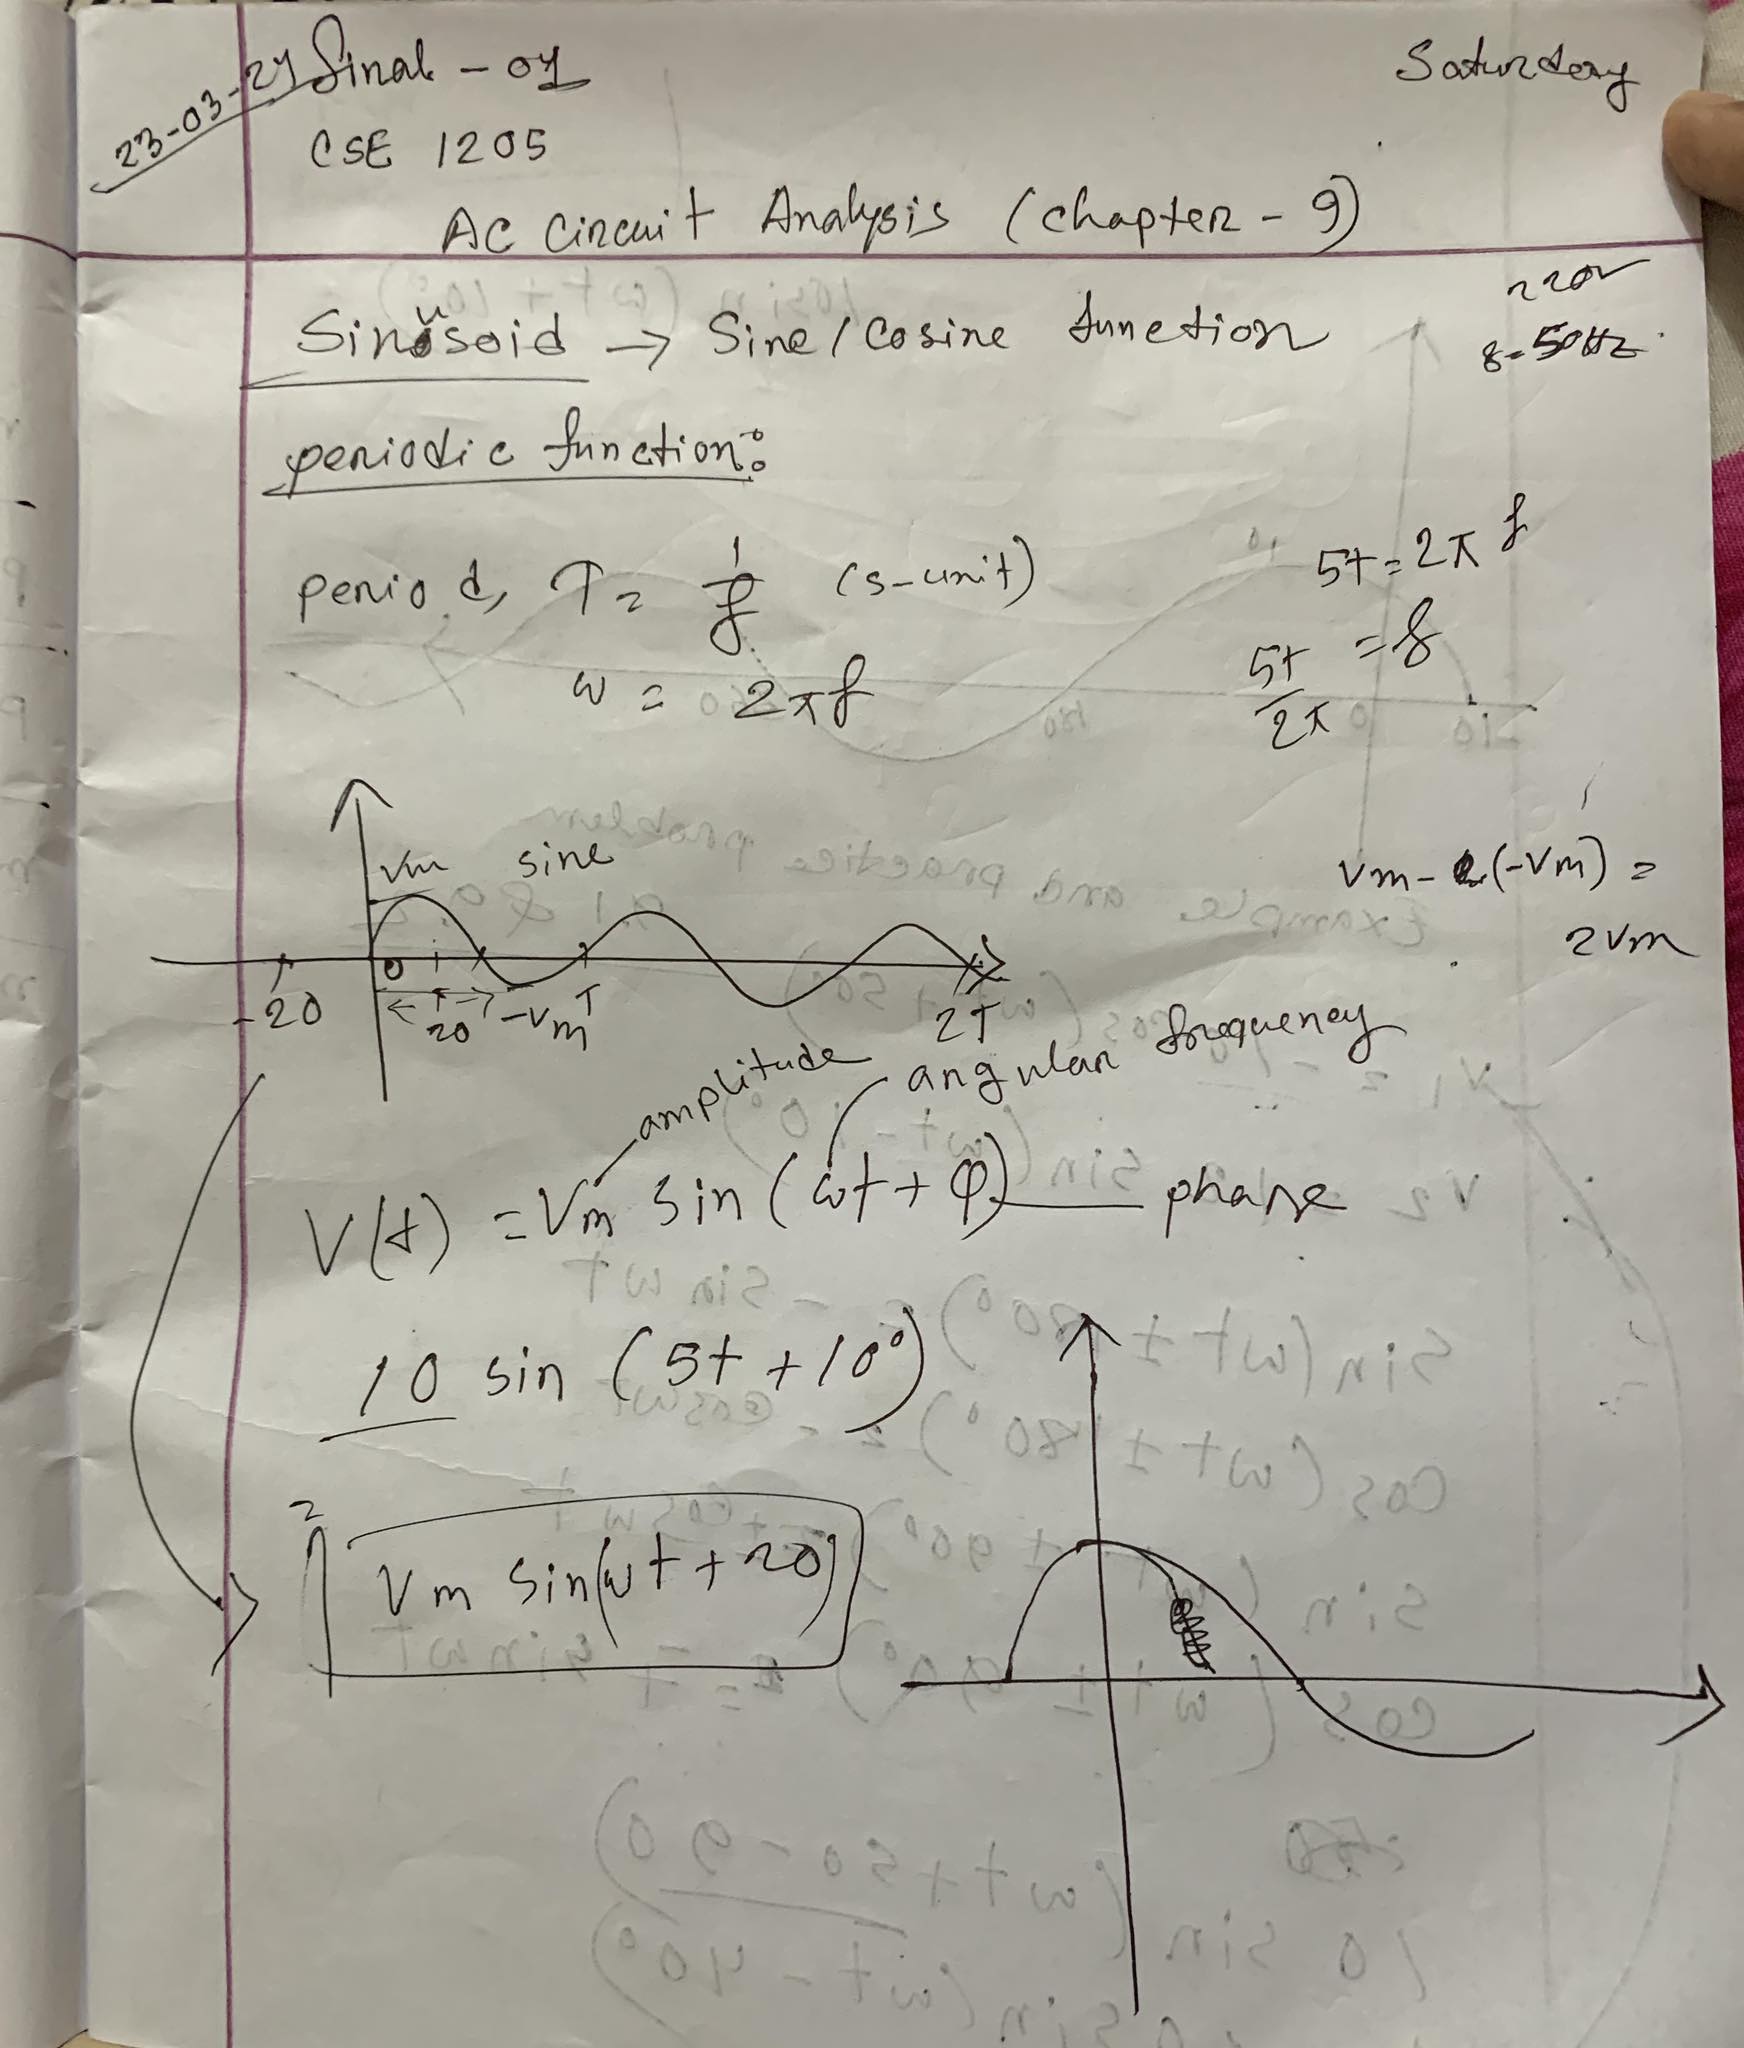 23-03-24 Final - 04
Saturday
CSE 1205
AC Circuit Analysis (Chapter - 9)
Sinusoid → Sine / Cosine function
220V
f = 50Hz
periodic function:
period, T = 1/f (s-unit)
5t = 2π f
ω = 2πf
5t/2π = f
Vm sine
Vm - (-Vm) =
2Vm
0
-20 20 -Vm T 2T
amplitude angular frequency
V(t) = Vm sin (ωt + φ) phase
10 sin (5t + 10°)
= Vm sin(ωt + 20)